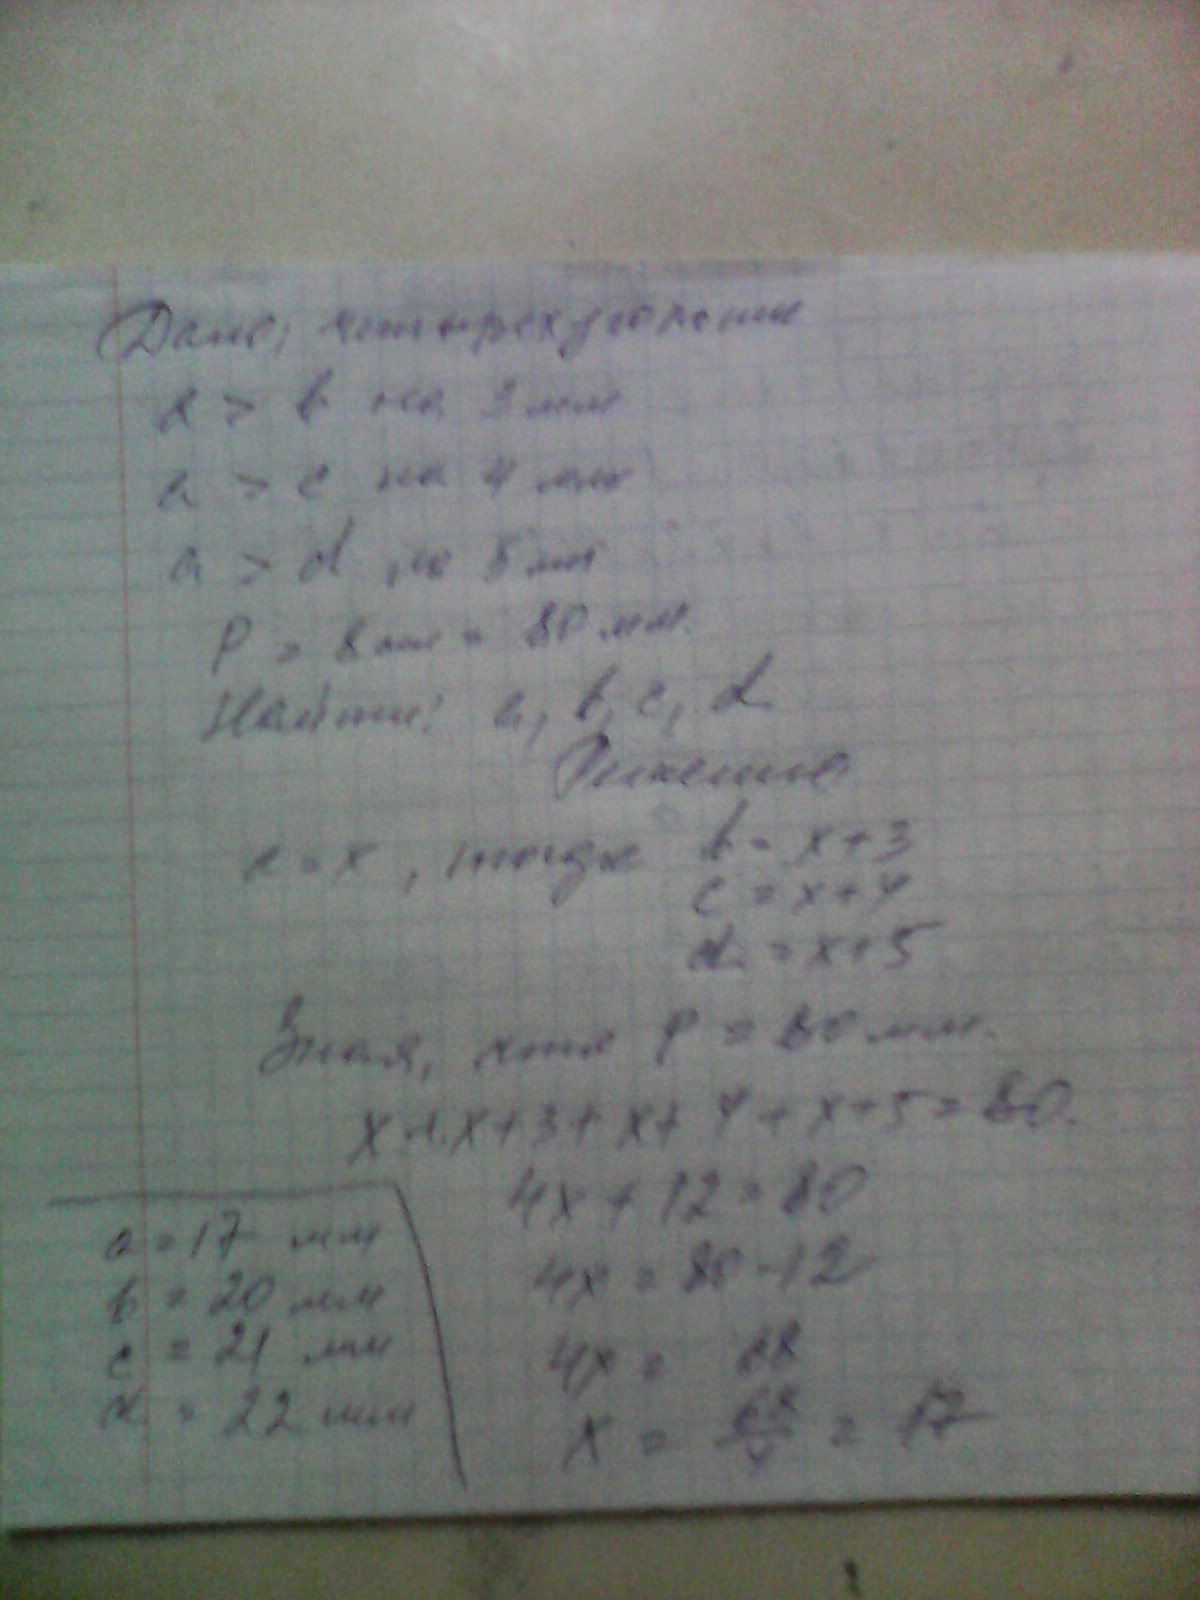 Дано: четырехугольник
a > b на 3 мм
a > c на 4 мм
a > d на 5 мм
P = 8 см = 80 мм.
Найти: a, b, c, d.
Решение
a = x, тогда b = x+3
c = x+4
d = x+5
Зная, что P = 80 мм.
x+x+3+x+4+x+5=80.
4x+12=80
4x = 80-12
4x = 68
x = 68/4 = 17
a = 17 мм
b = 20 мм
c = 21 мм
d = 22 мм